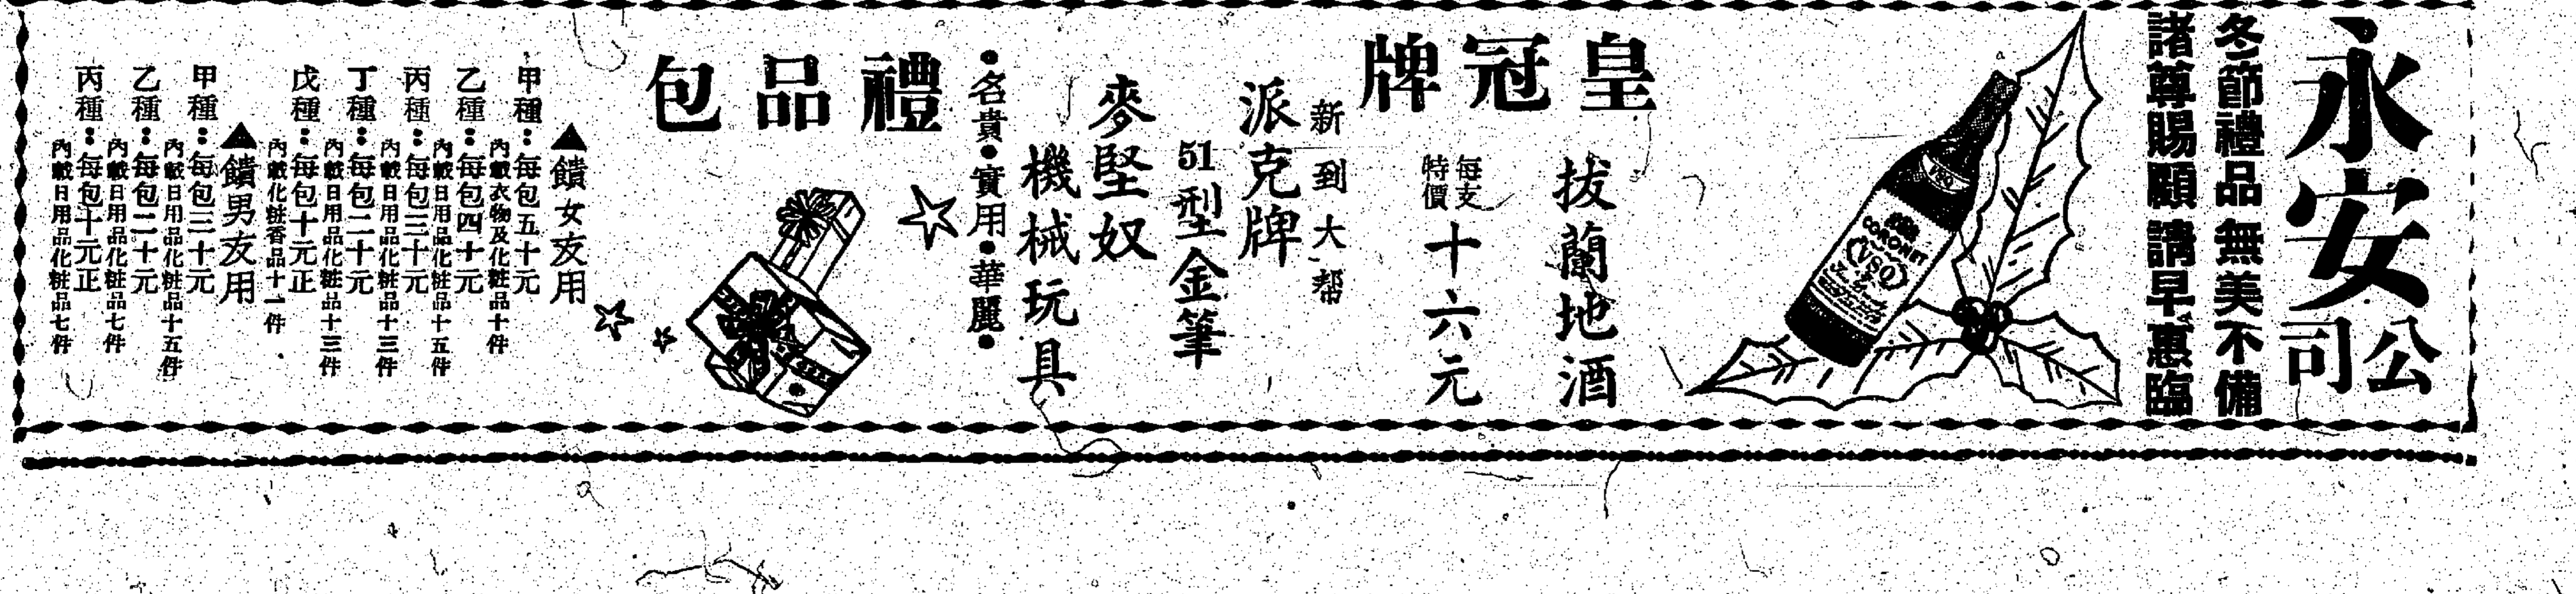 永安公司
冬節禮品 無美不備
諸尊賜顧 請早惠臨
CORONET
VSQ
皇冠牌
拔蘭地酒
每支
特價
十六元
新到大幫
派克牌
51型金筆
麥堅奴
機械玩具
•名貴•實用•華麗•
禮品包
▲饋女友用
甲種：每包五十元
內載衣物及化粧品十件
乙種：每包四十元
內載日用品化粧品十五件
丙種：每包三十元
內載日用品化粧品十三件
丁種：每包二十元
內載日用品化粧品十三件
戊種：每包十元正
內載化粧香品十一件
▲饋男友用
甲種：每包三十元
內載日用品化粧品十五件
乙種：每包二十元
內載日用品化粧品七件
丙種：每包十元正
內載日用品化粧品七件